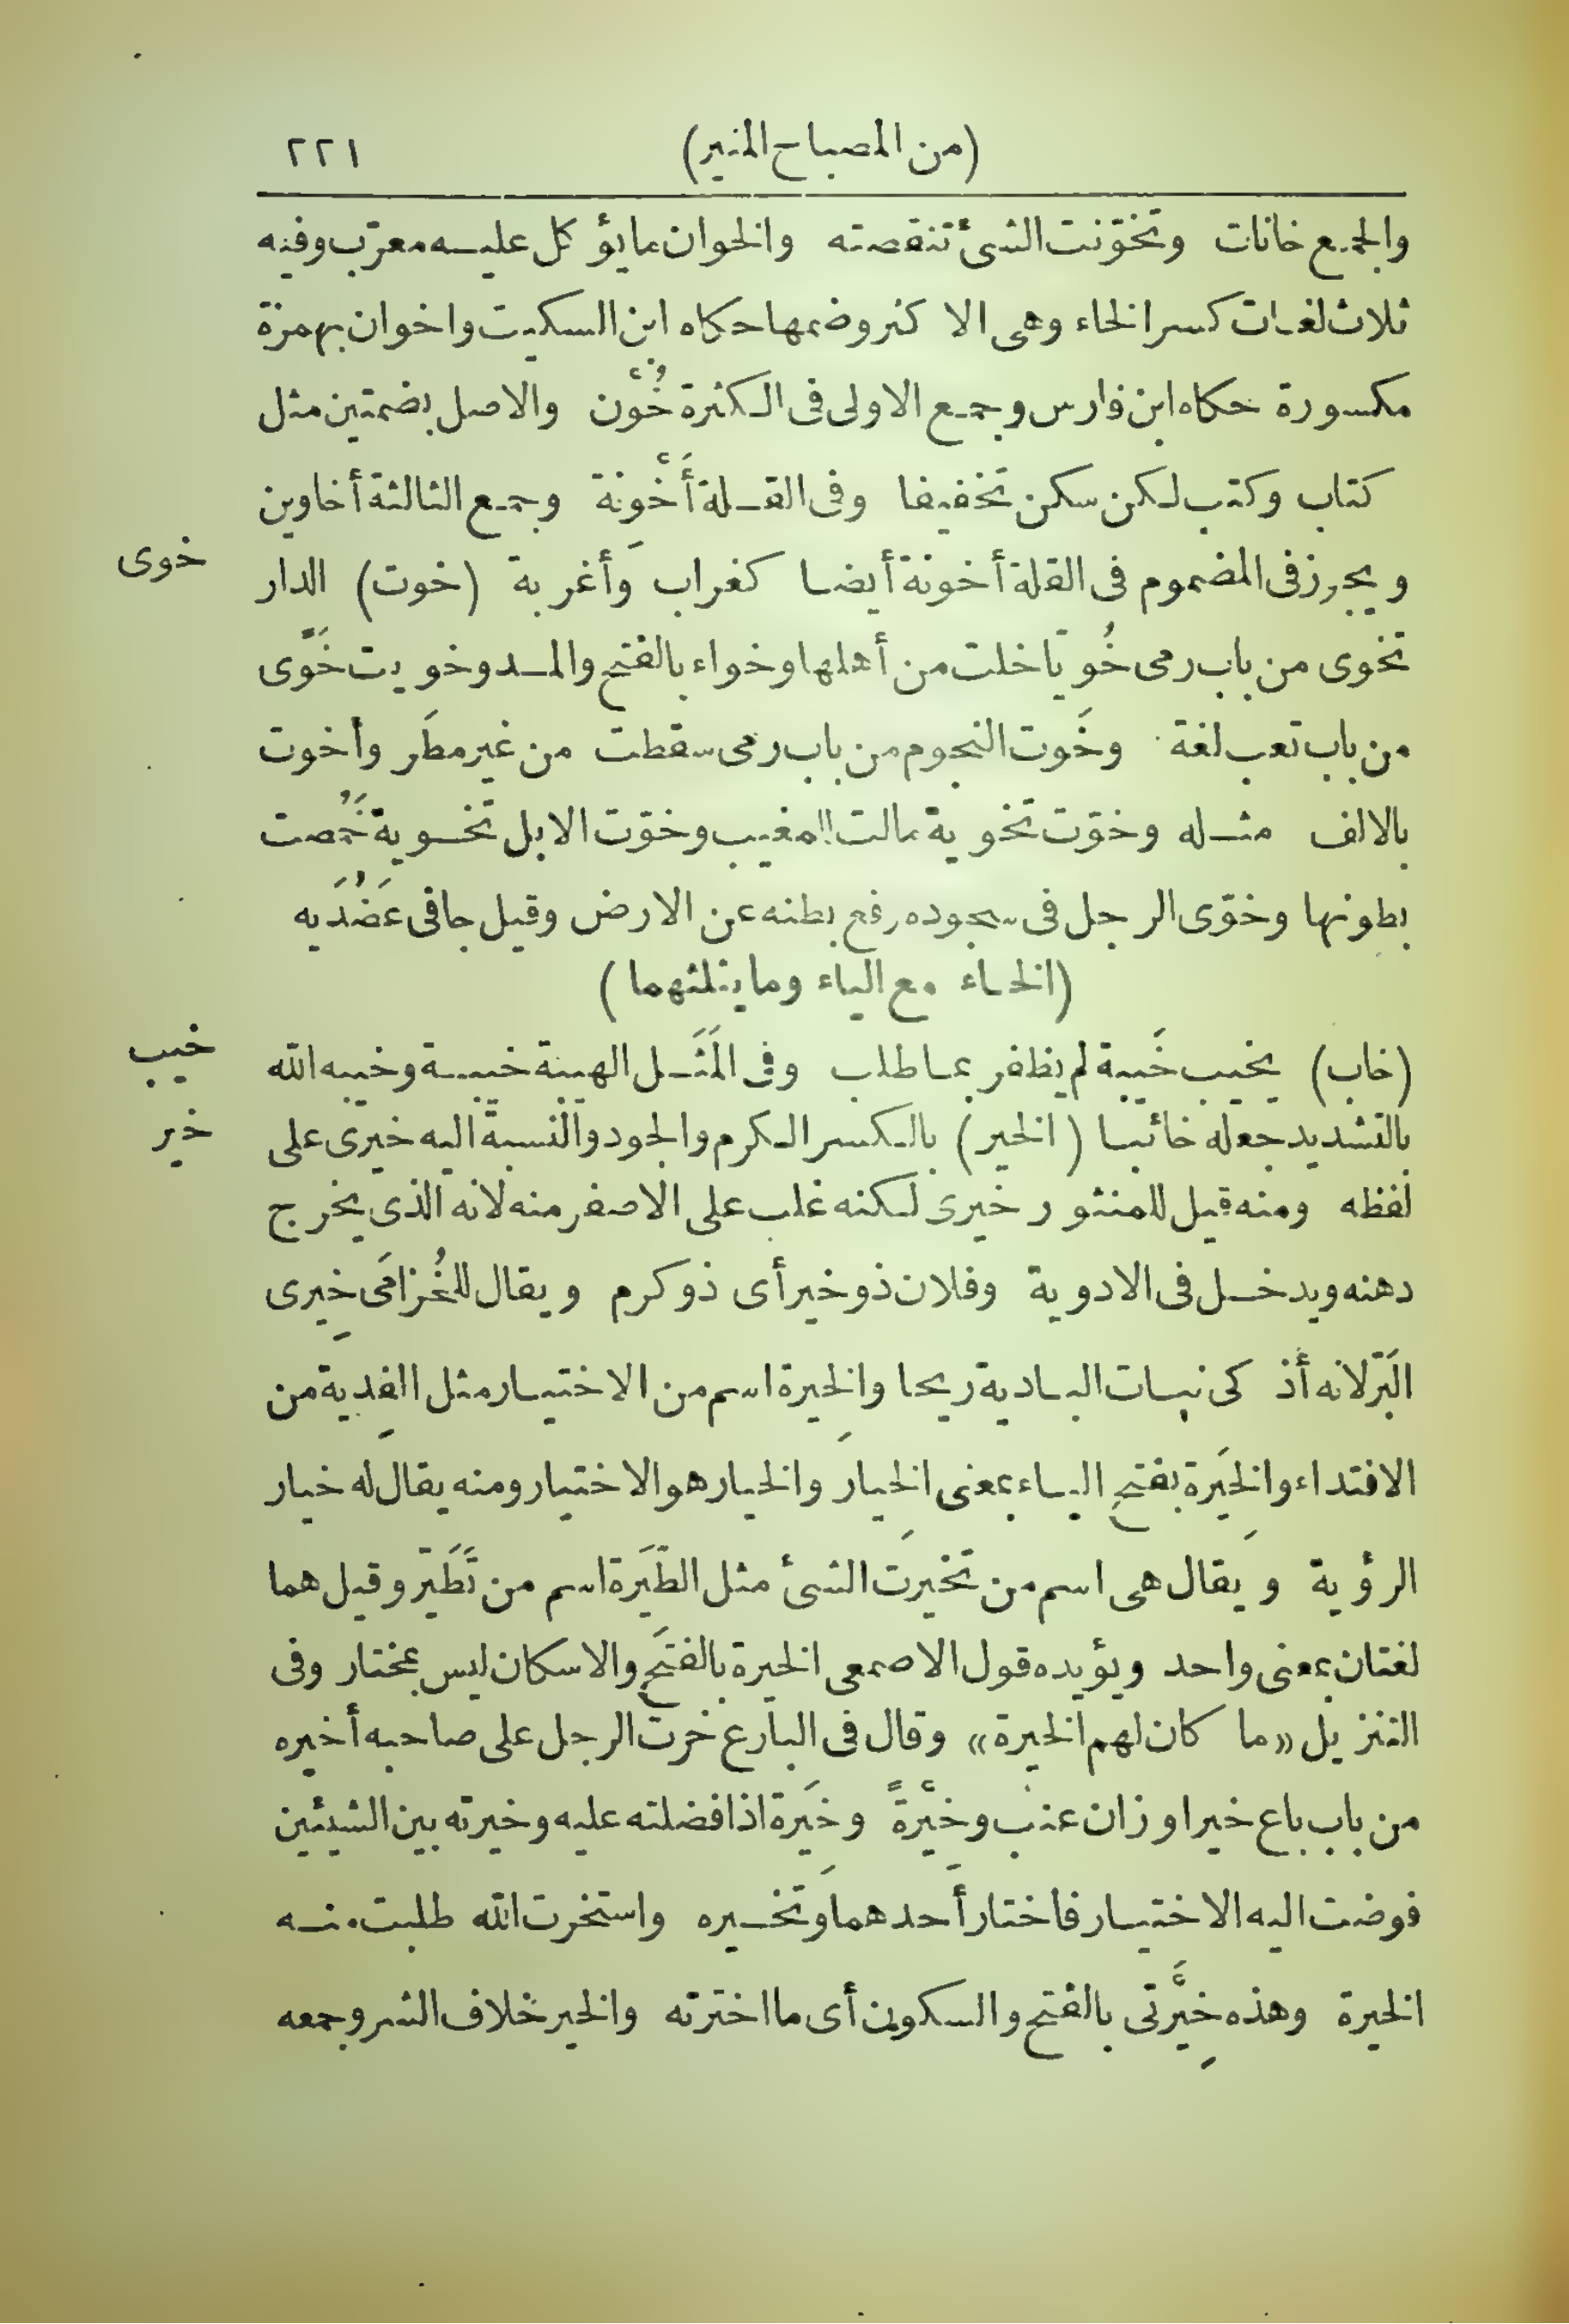 (من المصباح المنير) ٢٢١
والجمع خانات وتخوّنت الشئ تنقصته والخوان ما يؤكل عليه معرّب وفيه
ثلاث لغات كسر الخاء وهى الاكثر وضمها حكاه ابن السكيت واخوان بهمزة
مكسورة حكاه ابن فارس وجمع الاولى فى الكثرة خُوْن والاصل بضمتين مثل
كتاب وكتب لكن سكن تخفيفا وفى القلة أَخْوِنة وجمع الثالثة أخاوين
خوى
ويجوز فى المضموم فى القلة أخونة أيضا كغراب وأغربة (خوت) الدار
تخوى من باب رمى خُويّا خلت من أهلها وخواء بالفتح والمد وخويت خَوًى
من باب تعب لغة وخَوت النجوم من باب رمى سقطت من غير مطَر وأخوت
بالالف مثله وخوّت تخوية مالت للمغيب وخوّت الابل تخوية خَمُصت
بطونها وخوّى الرجل فى سجوده رفع بطنه عن الارض وقيل جافى عَضُدَيه
(الخاء مع الياء وما يثلثهما)
خيب
(خاب) يخيب خَيبة لم يظفر بما طلب وفى المَثَل الهيبة خيبة وخيبه الله
خير
بالتشديد جعله خائبا (الخير) بالكسر الكرم والجود والنسبة اليه خيرى على
لفظه ومنه قيل للمنثور خيرى لكنه غلب على الاصفر منه لانه الذى يخرج
دهنه ويدخل فى الادوية وفلان ذو خير أى ذو كرم ويقال للخُزامَى خِيرى
البَرّ لانه أذكى نبات البادية ريحا والخيرة اسم من الاختيار مثل الفِدية من
الافتداء والخِيَرة بفتح الياء بمعنى الخيار والخيار هو الاختيار ومنه يقال له خيار
الرؤية ويقال هى اسم من تخيرت الشئ مثل الطِّيَرة اسم من تَطَيّر وقيل هما
لغتان بمعنى واحد ويؤيده قول الاصمعى الخيرة بالفتح والاسكان ليس بمختار وفى
التنزيل «ما كان لهم الخيرة» وقال فى البارع خرت الرجل على صاحبه أخيره
من باب باع خيرا وزان عنب وخِيْرةً وخِيَرة اذا فضلته عليه وخيرته بين الشيئين
فوضت اليه الاختيار فاختار أحدهما وتخيره واستخرت الله طلبت منه
الخيرة وهذه خِيَْرتى بالفتح والسكون أى ما اخترته والخير خلاف الشر وجمعه